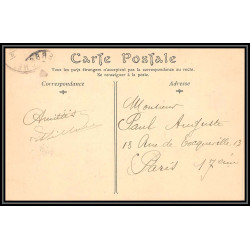 Carte Postale
Tous les pays étrangers n'acceptent pas la correspondance au recto.
Se renseigner à la poste.
Correspondance
Adresse
Amitiés
Monsieur
Paul Auguste
18 Rue de Tocqueville 13
Paris 17ème